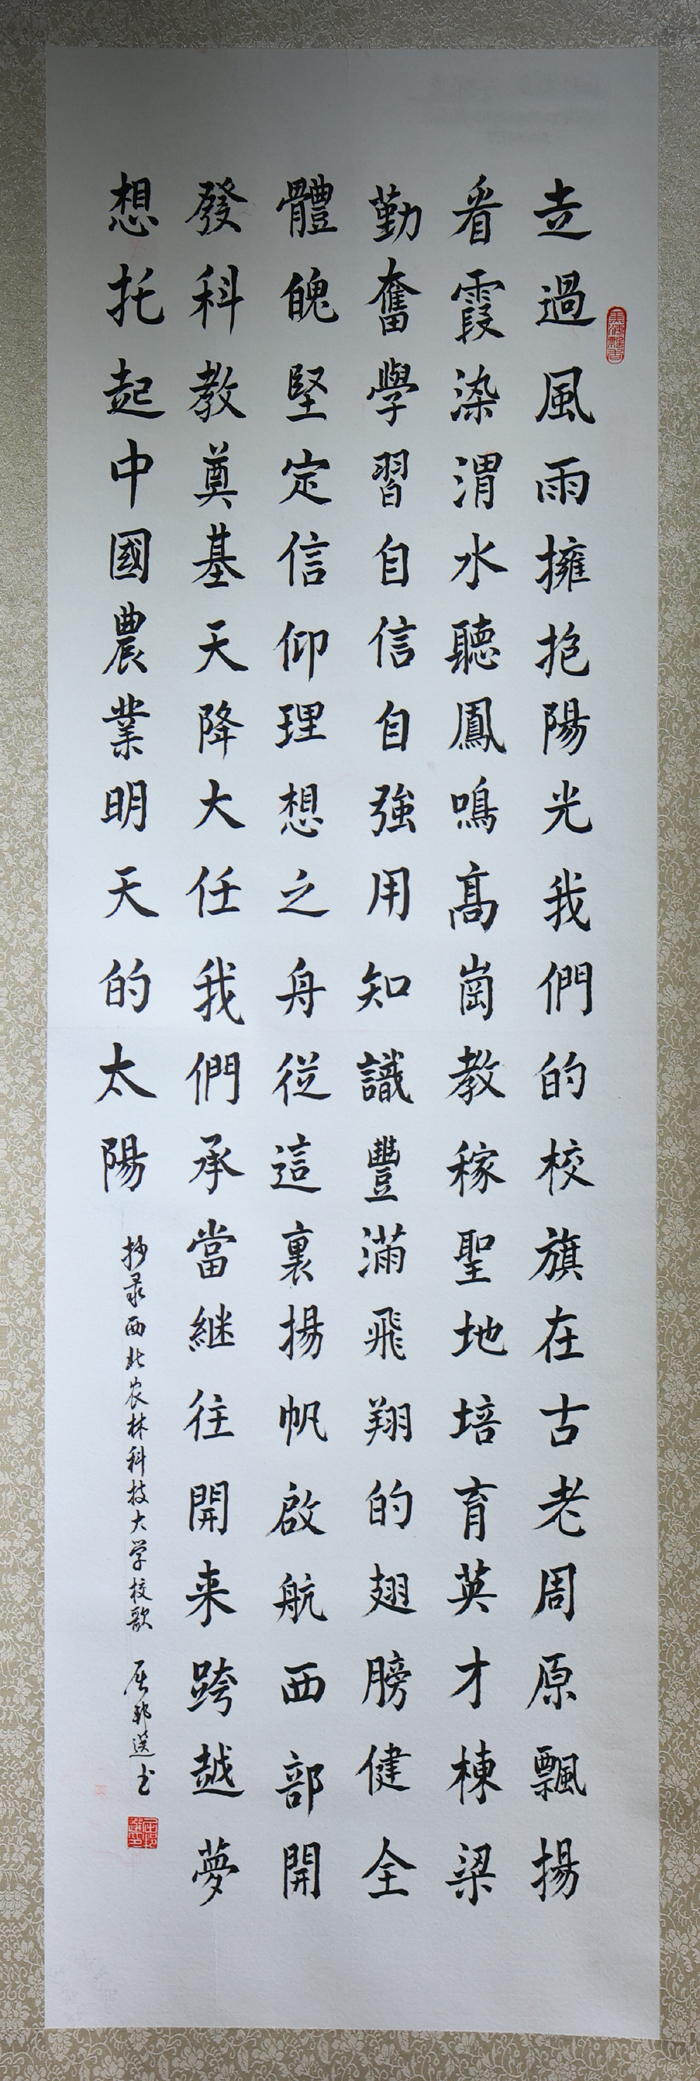 走過風雨擁抱陽光我們的校旗在古老周原飄揚
看霞染渭水聽鳳鳴高崗教稼聖地培育英才棟梁
勤奮學習自信自強用知識豐滿飛翔的翅膀健全
體魄堅定信仰理想之舟從這裏揚帆啟航西部開
發科教奠基天降大任我們承當継往開来跨越夢
想托起中國農業明天的太陽
抄录西北农林科技大学校歌 屈邦选书